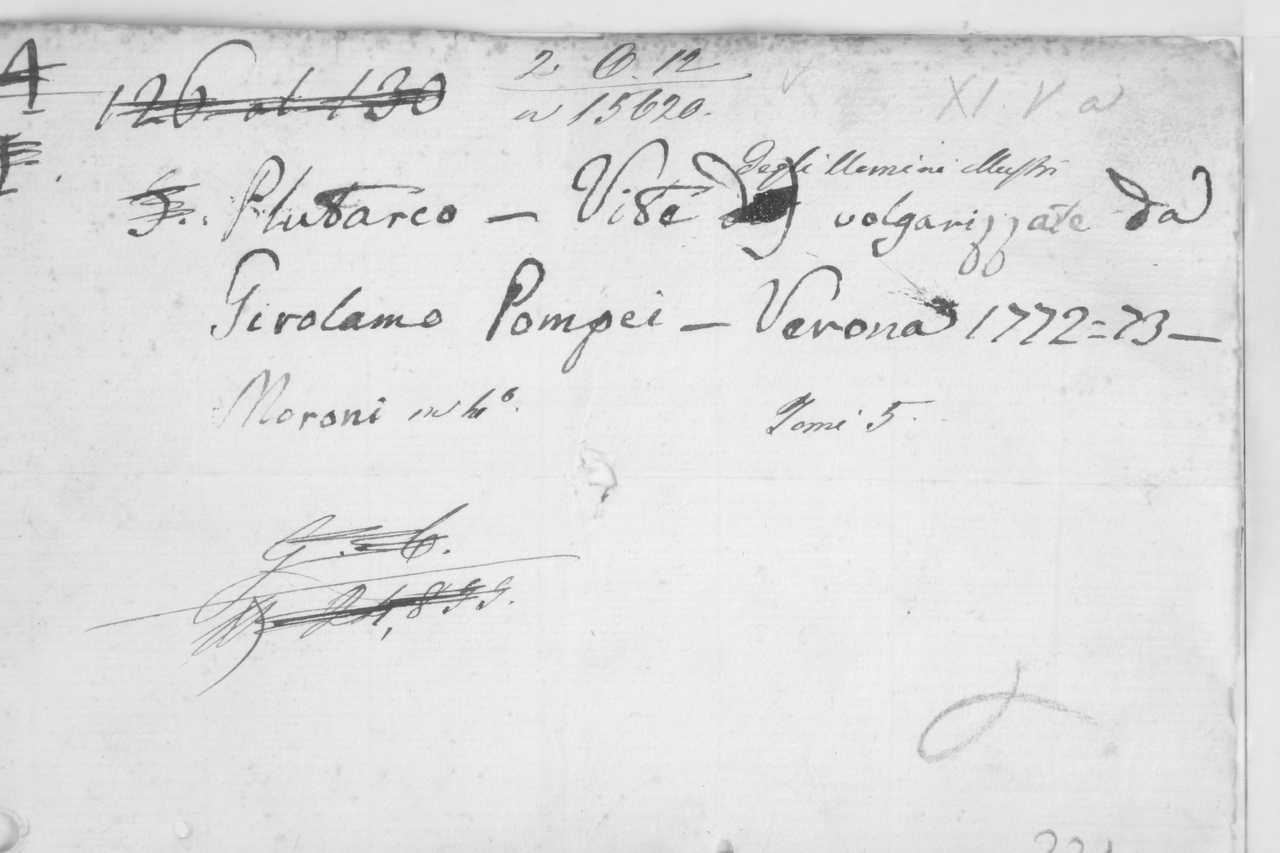 4
126 al 130
2. O. 12
a 15620.
XI. V a
Plutarco — Vite degli Uomini illustri volgarizzate da
Girolamo Pompei — Verona 1772=73 —
Moroni in 4°.
Tomi 5.
G. C.
24,899.